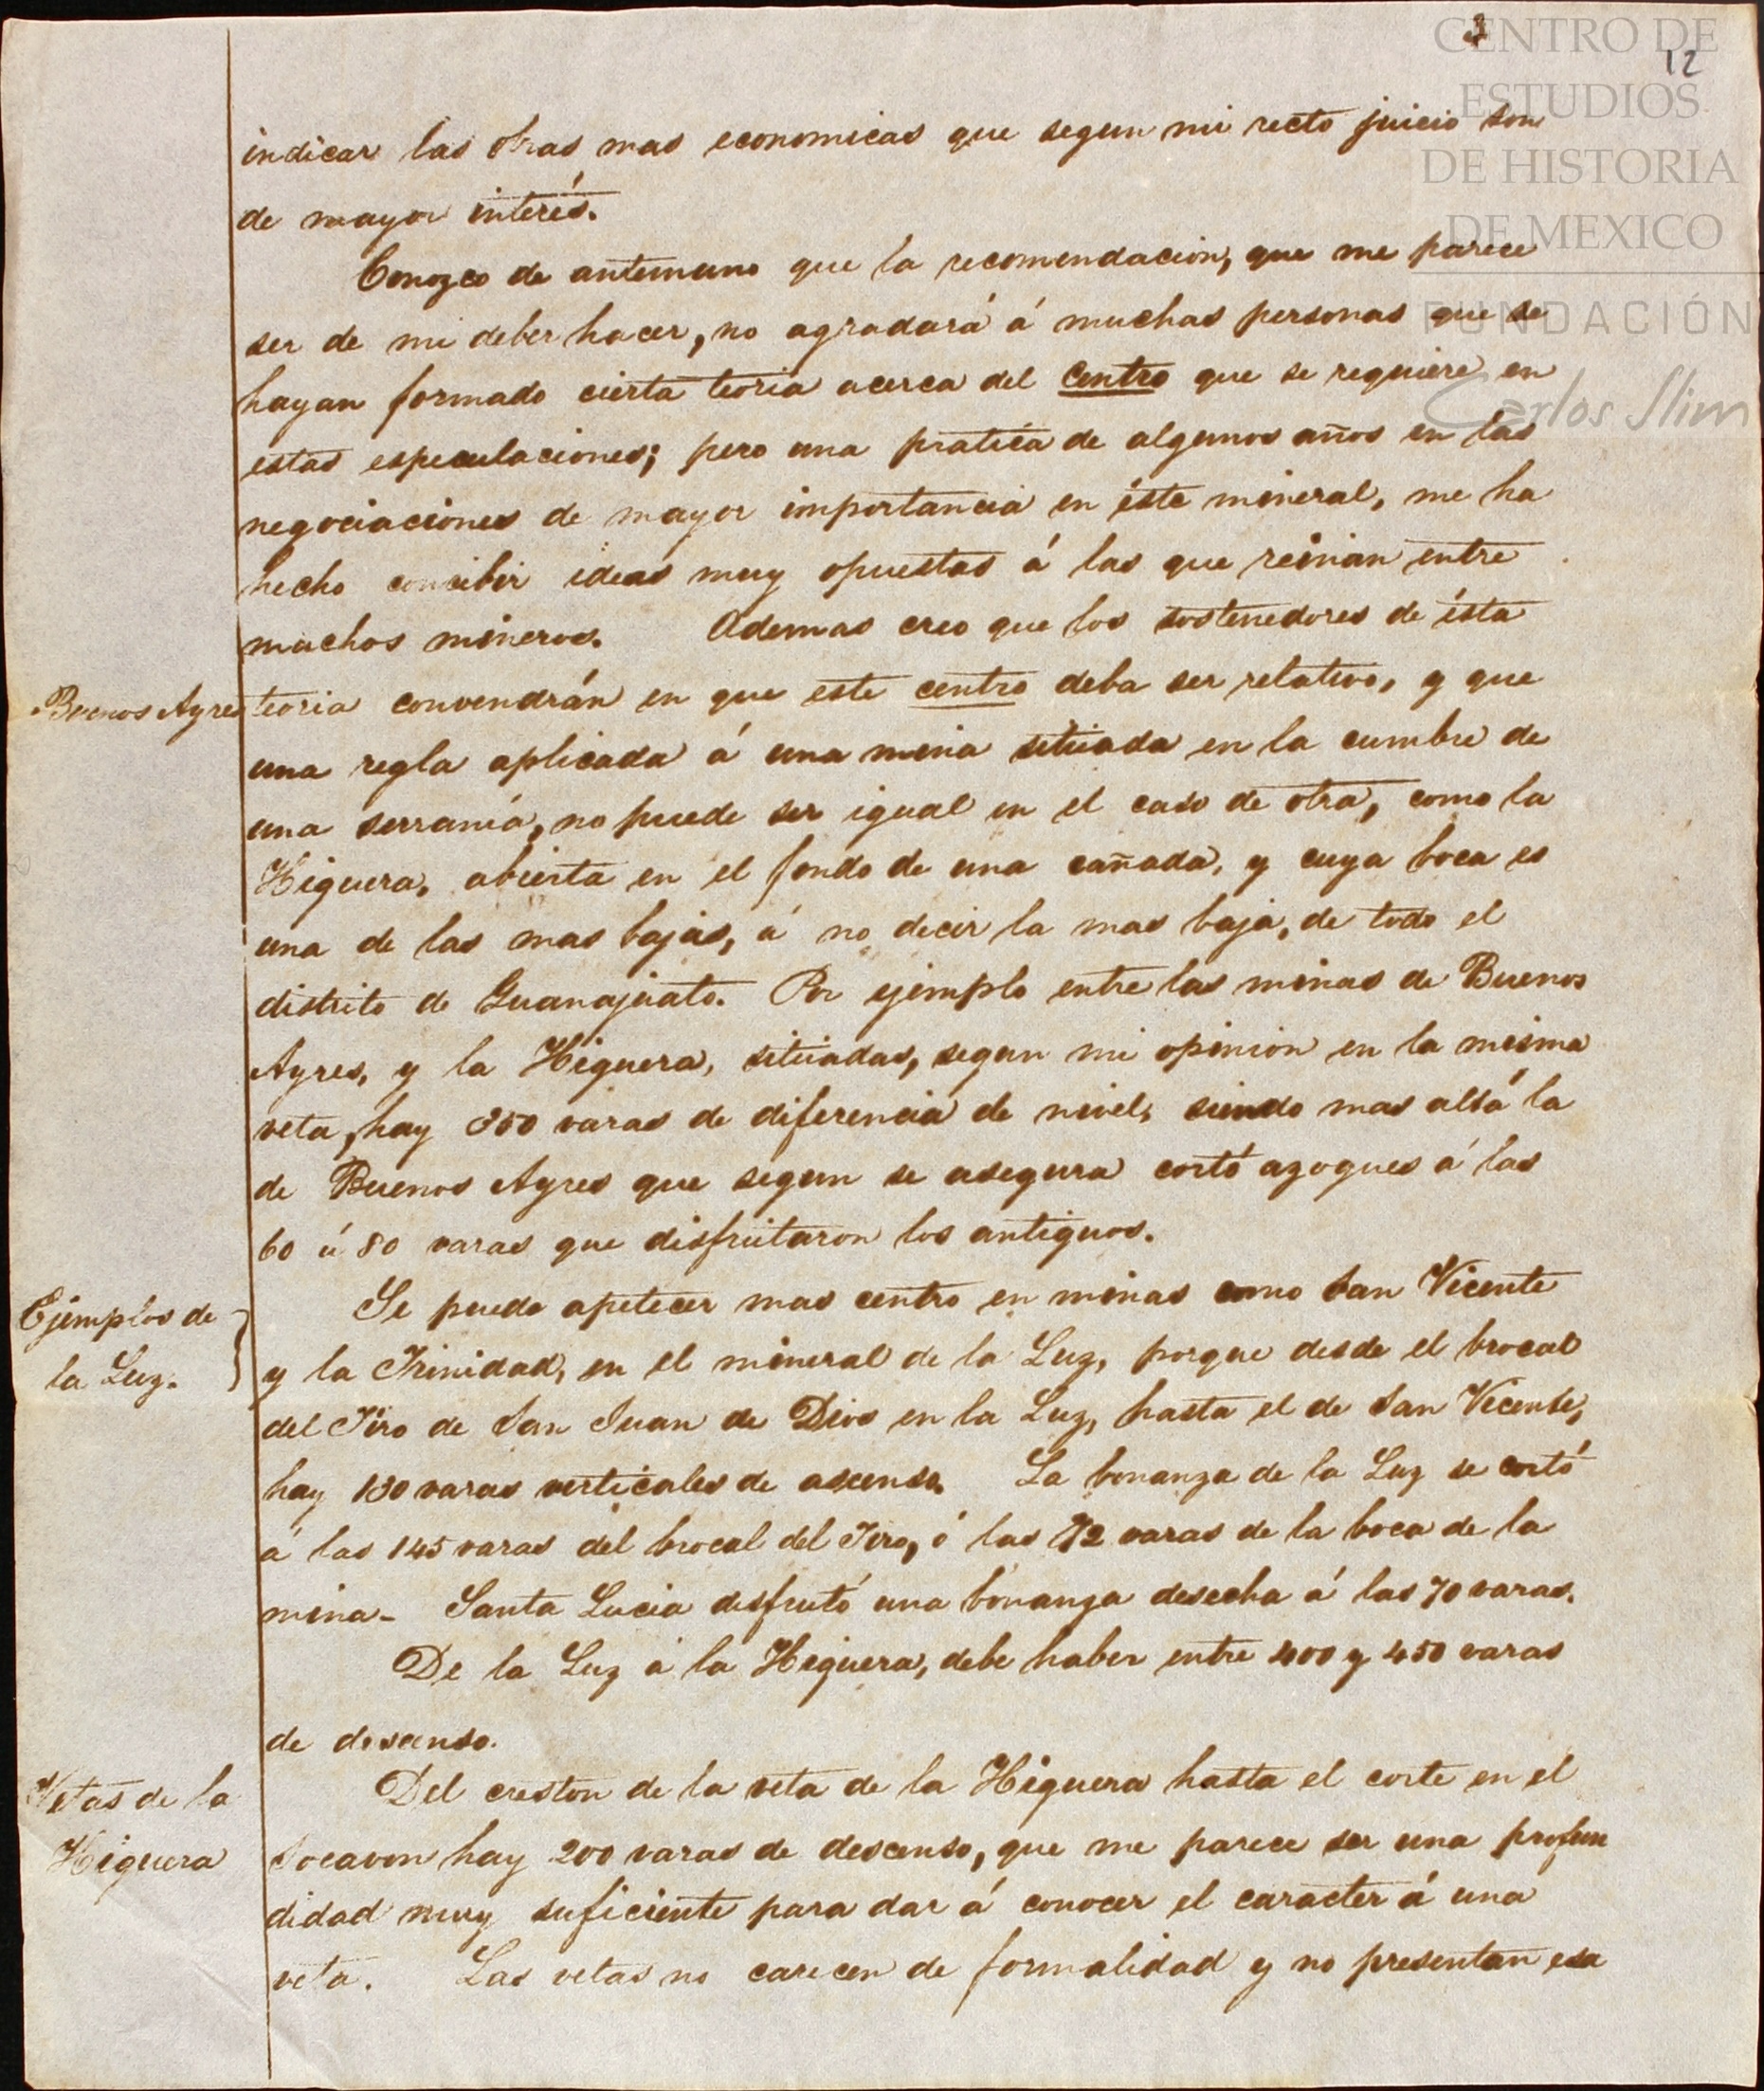 CENTRO DE
ESTUDIOS
DE HISTORIA
DE MEXICO
FUNDACIÓN
Carlos Slim
12
indicar las obras mas economicas que segun mi recto juicio son
de mayor interés.
Conozco de antemano que la recomendacion, que me parece
ser de mi deber hacer, no agradará á muchas personas que se
hayan formado cierta teoria acerca del centro que se requiere en
estas especulaciones; pero una pratica de algunos años en las
negociaciones de mayor importancia en éste mineral, me ha
hecho concibir ideas muy opuestas á las que reinan entre
muchos mineros. Ademas creo que los sostenedores de ésta
Buenos Ayres
teoria convendrán en que este centro deba ser relativo, y que
una regla aplicada á una mina situada en la cumbre de
una serrania, no puede ser igual en el caso de otra, como la
Higuera, abierta en el fondo de una cañada, y cuya boca es
una de las mas bajas, á no decir la mas baja, de todo el
distrito de Guanajuato. Por ejemplo entre las minas de Buenos
Ayres, y la Higuera, situadas, segun mi opinion en la misma
veta, hay 350 varas de diferencia de nivel, siendo mas alta la
de Buenos Ayres que segun se asegura cortó azogues á las
60 ú 80 varas que disfrutaron los antiguos.
Ejemplos de
la Luz.
Se puede apetecer mas centro en minas como San Vicente
y la Trinidad, en el mineral de la Luz, porque desde el brocal
del Tiro de San Juan de Dios en la Luz, hasta el de San Vicente,
hay 130 varas verticales de ascenso. La bonanza de la Luz se cortó
á las 145 varas del brocal del Tiro, ó las 72 varas de la boca de la
mina - Santa Lucia disfrutó una bonanza desecha á las 70 varas.
De la Luz a la Higuera, debe haber entre 400 y 450 varas
de descenso.
Vetas de la
Higuera
Del creston de la veta de la Higuera hasta el corte en el
Socavon hay 200 varas de descenso, que me parece ser una profun
didad muy suficiente para dar á conocer el caracter á una
veta. Las vetas no carecen de formalidad y no presentan esa